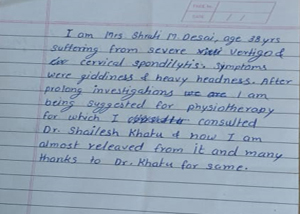 I am Mrs Shruti M. Desai, age 38yrs
suffering from severe vertigo &
cervical spondilytis. Symptoms
were giddiness & heavy headness. After
prolong investigations I am
being suggested for physiotherapy
for which I consulted
Dr. Shailesh Khatu & now I am
almost releaved from it and many
thanks to Dr. Khatu for same.